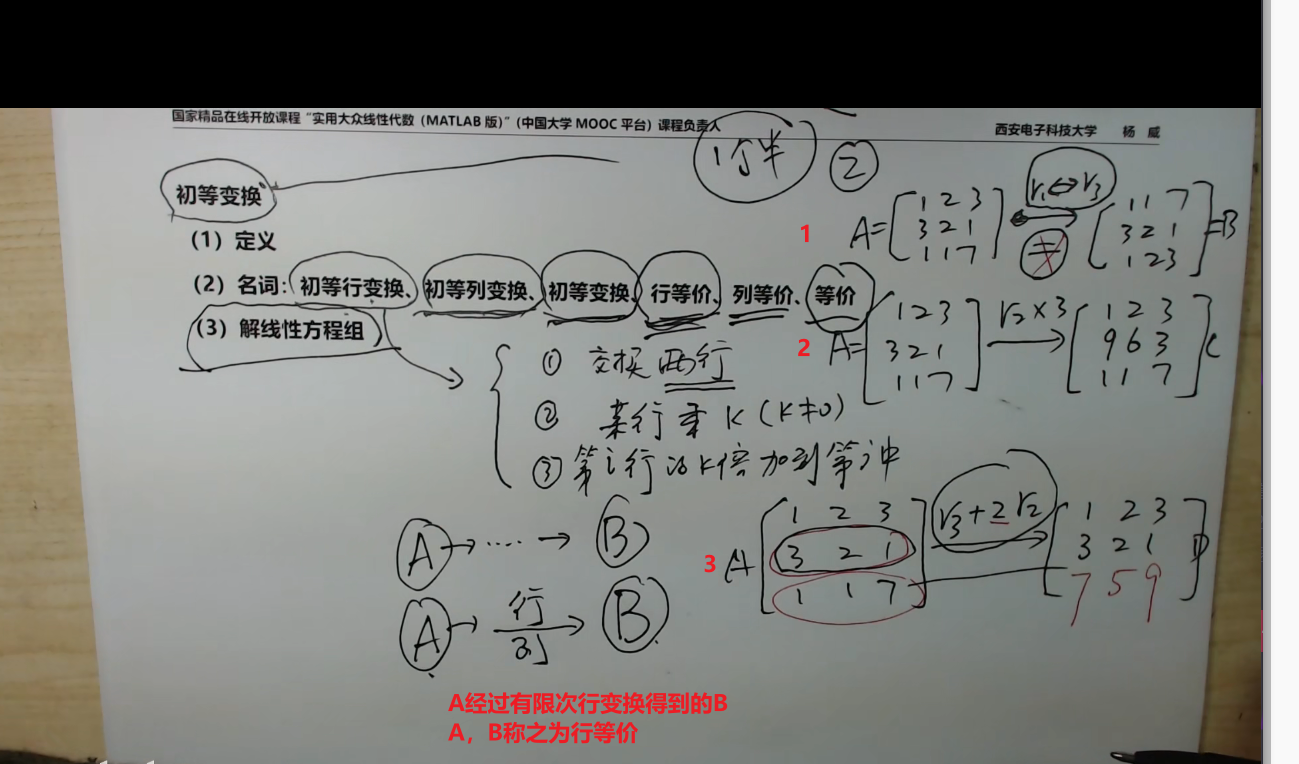 国家精品在线开放课程“实用大众线性代数（MATLAB 版）”（中国大学 MOOC 平台）课程负责人
西安电子科技大学 杨 威
②
初等变换
（1）定义
（2）名词：初等行变换、初等列变换、初等变换、行等价、列等价、等价
（3）解线性方程组
1
A= [ 1 2 3
3 2 1
1 1 7 ] r₁↔r₃ [ 1 1 7
3 2 1
1 2 3 ] =B
=
2
A= [ 1 2 3
3 2 1
1 1 7 ] r₂×3 → [ 1 2 3
9 6 3
1 1 7 ] C
① 交换两行
② 某行乘 K (K≠0)
③ 第i行的K倍加到第j行
3
A [ 1 2 3
3 2 1
1 1 7 ] r₃+2r₂ → [ 1 2 3
3 2 1
7 5 9 ] D
A → ···· → B
A → 行 → B
列
A经过有限次行变换得到的B
A，B称之为行等价